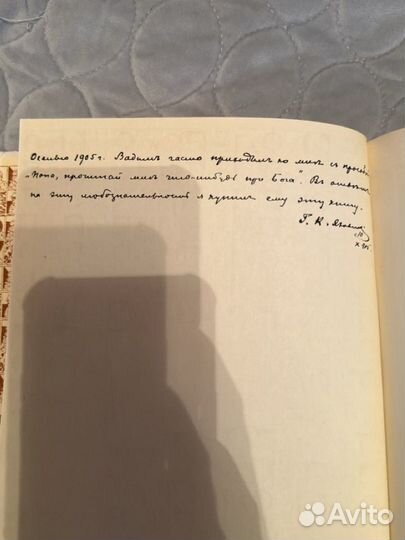 Осенью 1905 г. Вадимъ часто приходилъ ко мнѣ съ просьбой
"Папа, прочитай мнѣ что-нибудь про Бога". Въ отвѣтъ
на эту любознательность я купилъ ему эту книгу.
Г. К.
X 905.
Avito